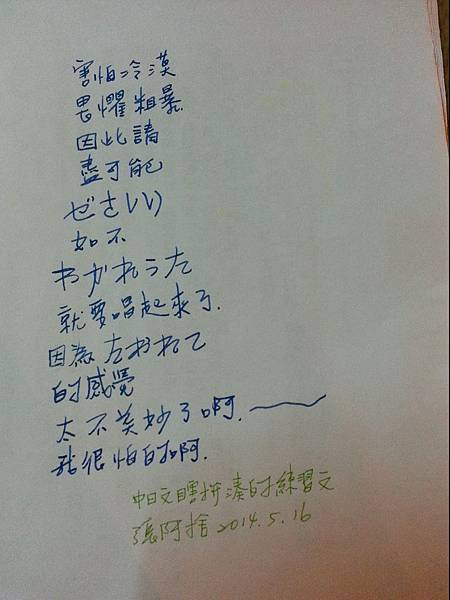 害怕冷漠
畏懼粗暴
因此請
盡可能
ぜさい
如不
わかれうた
就要唱起來了.
因為
的感覺
太不美妙了啊.
我很怕的啊.
中日文瞎拼湊的練習文
張阿捨 2014.5.16